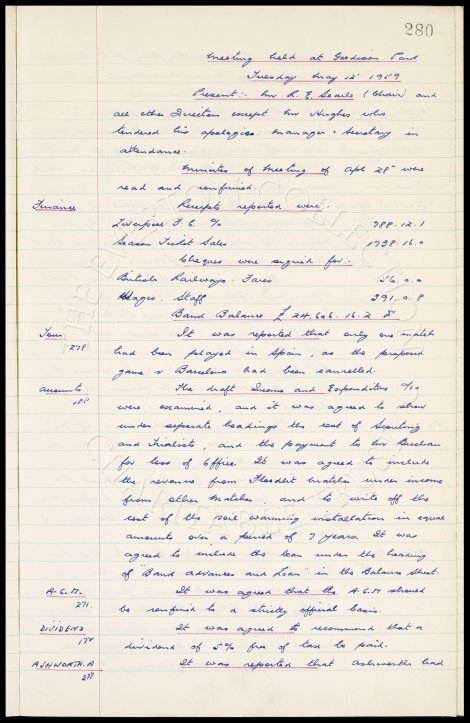 280
Meeting held at Goodison Park
Tuesday May 12 1959
Present:- Mr R. E. Searle (Chair) and
all other Directors except Mr Hughes who
tendered his apologies. Manager & Secretary in
attendance.
Minutes of Meeting of Apl 28 were
read and confirmed.
Finance Receipts reported were:-
Liverpool F.C. 788. 12. 1
Season Ticket Sales 1938. 16. 0
Cheques were signed for:-
British Railways. Fares 56. 0. 0
Wages. Staff 391. 0. 8
Bank Balance £ 24.606. 16. 2
Tour It was reported that only one match
278 had been played in Spain, as the proposed
game v Barcelona had been cancelled.
Accounts The draft Income and Expenditure a/cs
were examined, and it was agreed to show
under separate headings the cost of Scouting
and Trialists, and the payment to Mr Buchan
for loss of Office. It was agreed to include
the revenue from Floodlit matches under income
from other matches, and to write off the
cost of the soil warming installation in equal
amounts over a period of 7 years. It was
agreed to include the loan under the heading
of "Bank advances and Loan" in the Balance Sheet.
A.G.M. It was agreed that the A.G.M should
271 be confined to a strictly official basis.
DIVIDEND It was agreed to recommend that a
dividend of 5% free of tax be paid.
ASHWORTH. A It was reported that Ashworth had
THE EVERTON COLLECTION